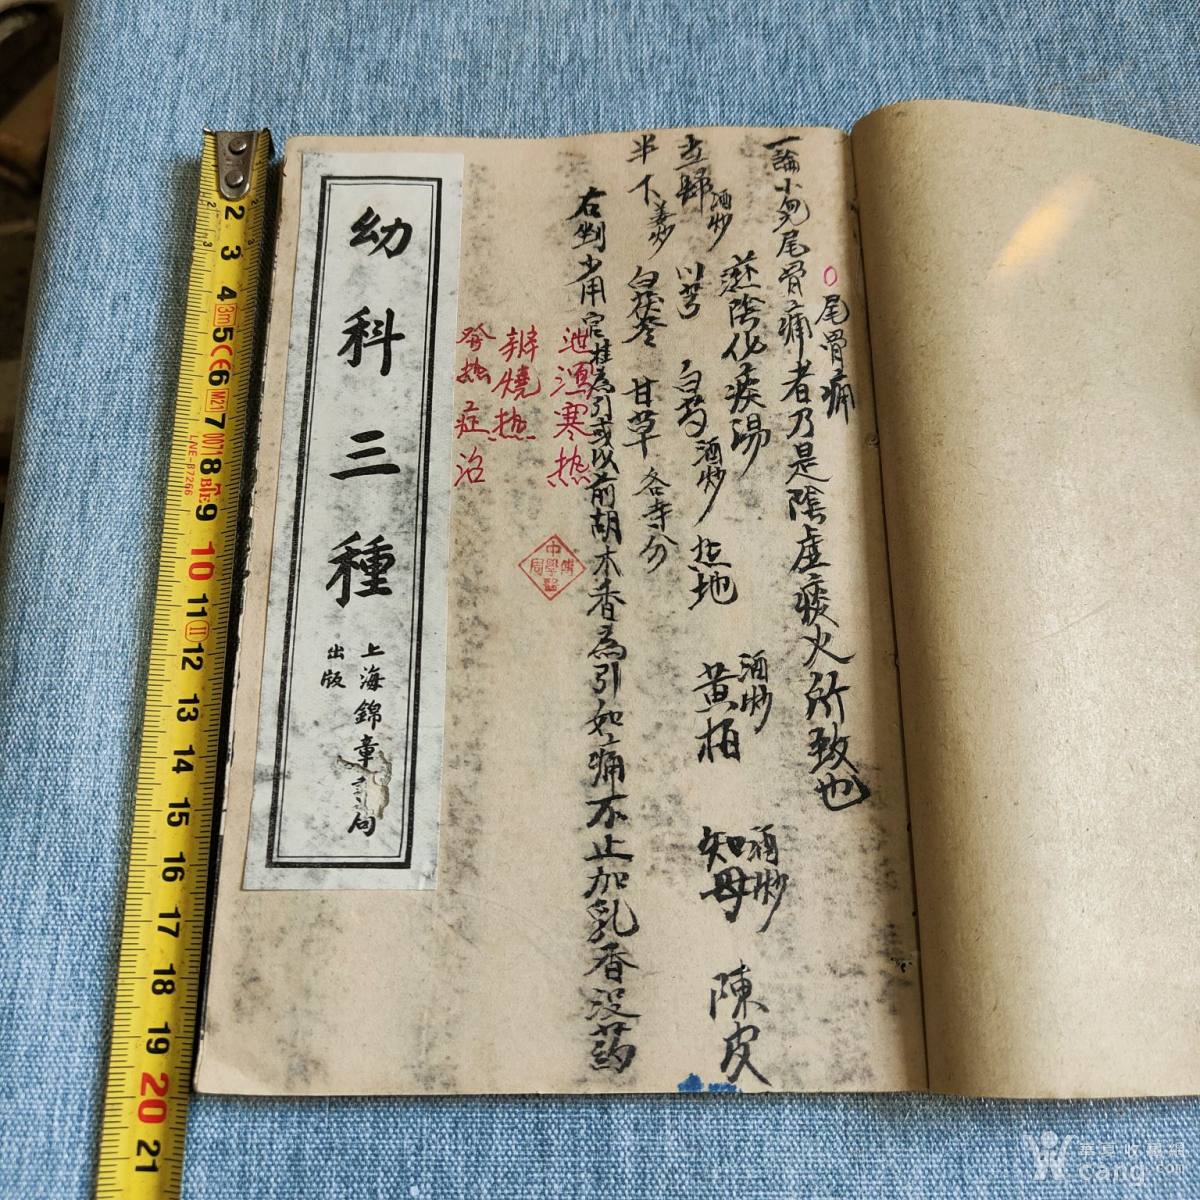 尾骨痛
一論小兒尾骨痛者乃是陰虛痰火所致也
滋陰化痰湯
當歸酒炒 川芎 白芍酒炒 熟地 黃柏酒炒 知母酒炒 陳皮
半下姜炒 白茯苓 甘草 各等分
右剉 少用官桂為引或以前胡木香為引如痛不止加乳香没药
泄瀉寒热
辨燒热
發热症治
中學醫
傅
周
幼科三種
上海錦章
出版
2
3
4
3m
5
CE
6
M21
7
0071
8
9
10
11
II
12
13
14
15
16
17
18
19
20
21
LNE-B7266
華夏收藏網
cang.com